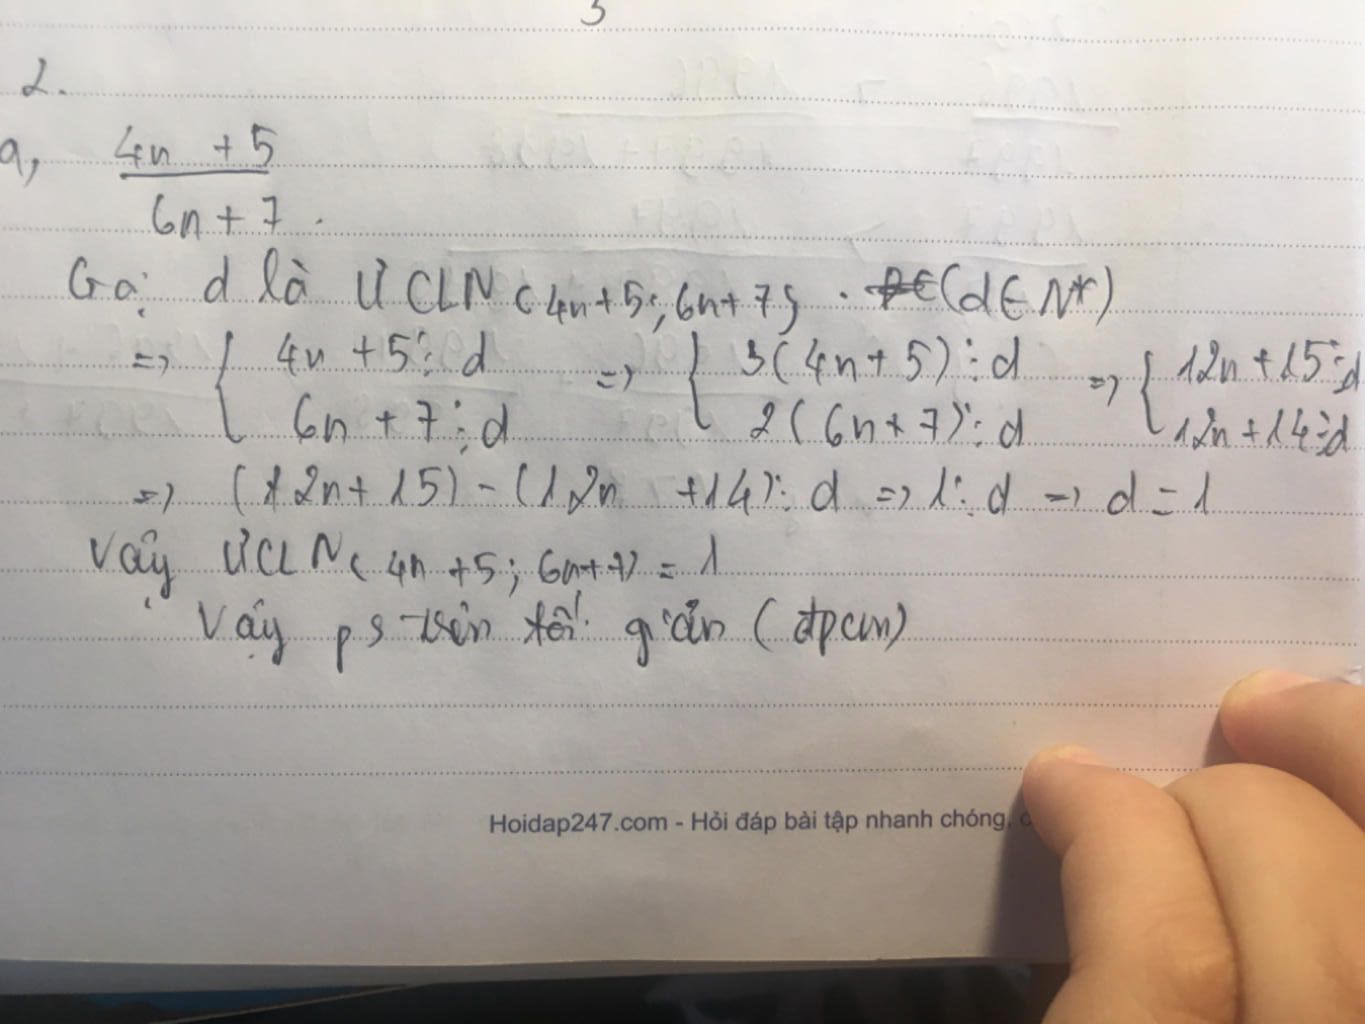 3
2.
a, 4n + 5
6n + 7.
Gọi d là ƯCLN (4n+5; 6n+7). (d ∈ N*)
=> { 4n + 5 ⋮ d => { 3(4n+5) ⋮ d => { 12n + 15 ⋮ d
6n + 7 ⋮ d 2(6n+7) ⋮ d 12n + 14 ⋮ d
=> (12n+15) - (12n +14) ⋮ d => 1 ⋮ d => d = 1
Vậy ƯCLN (4n+5; 6n+7) = 1
Vậy ps trên tối giản (đpcm)
Hoidap247.com - Hỏi đáp bài tập nhanh chóng,